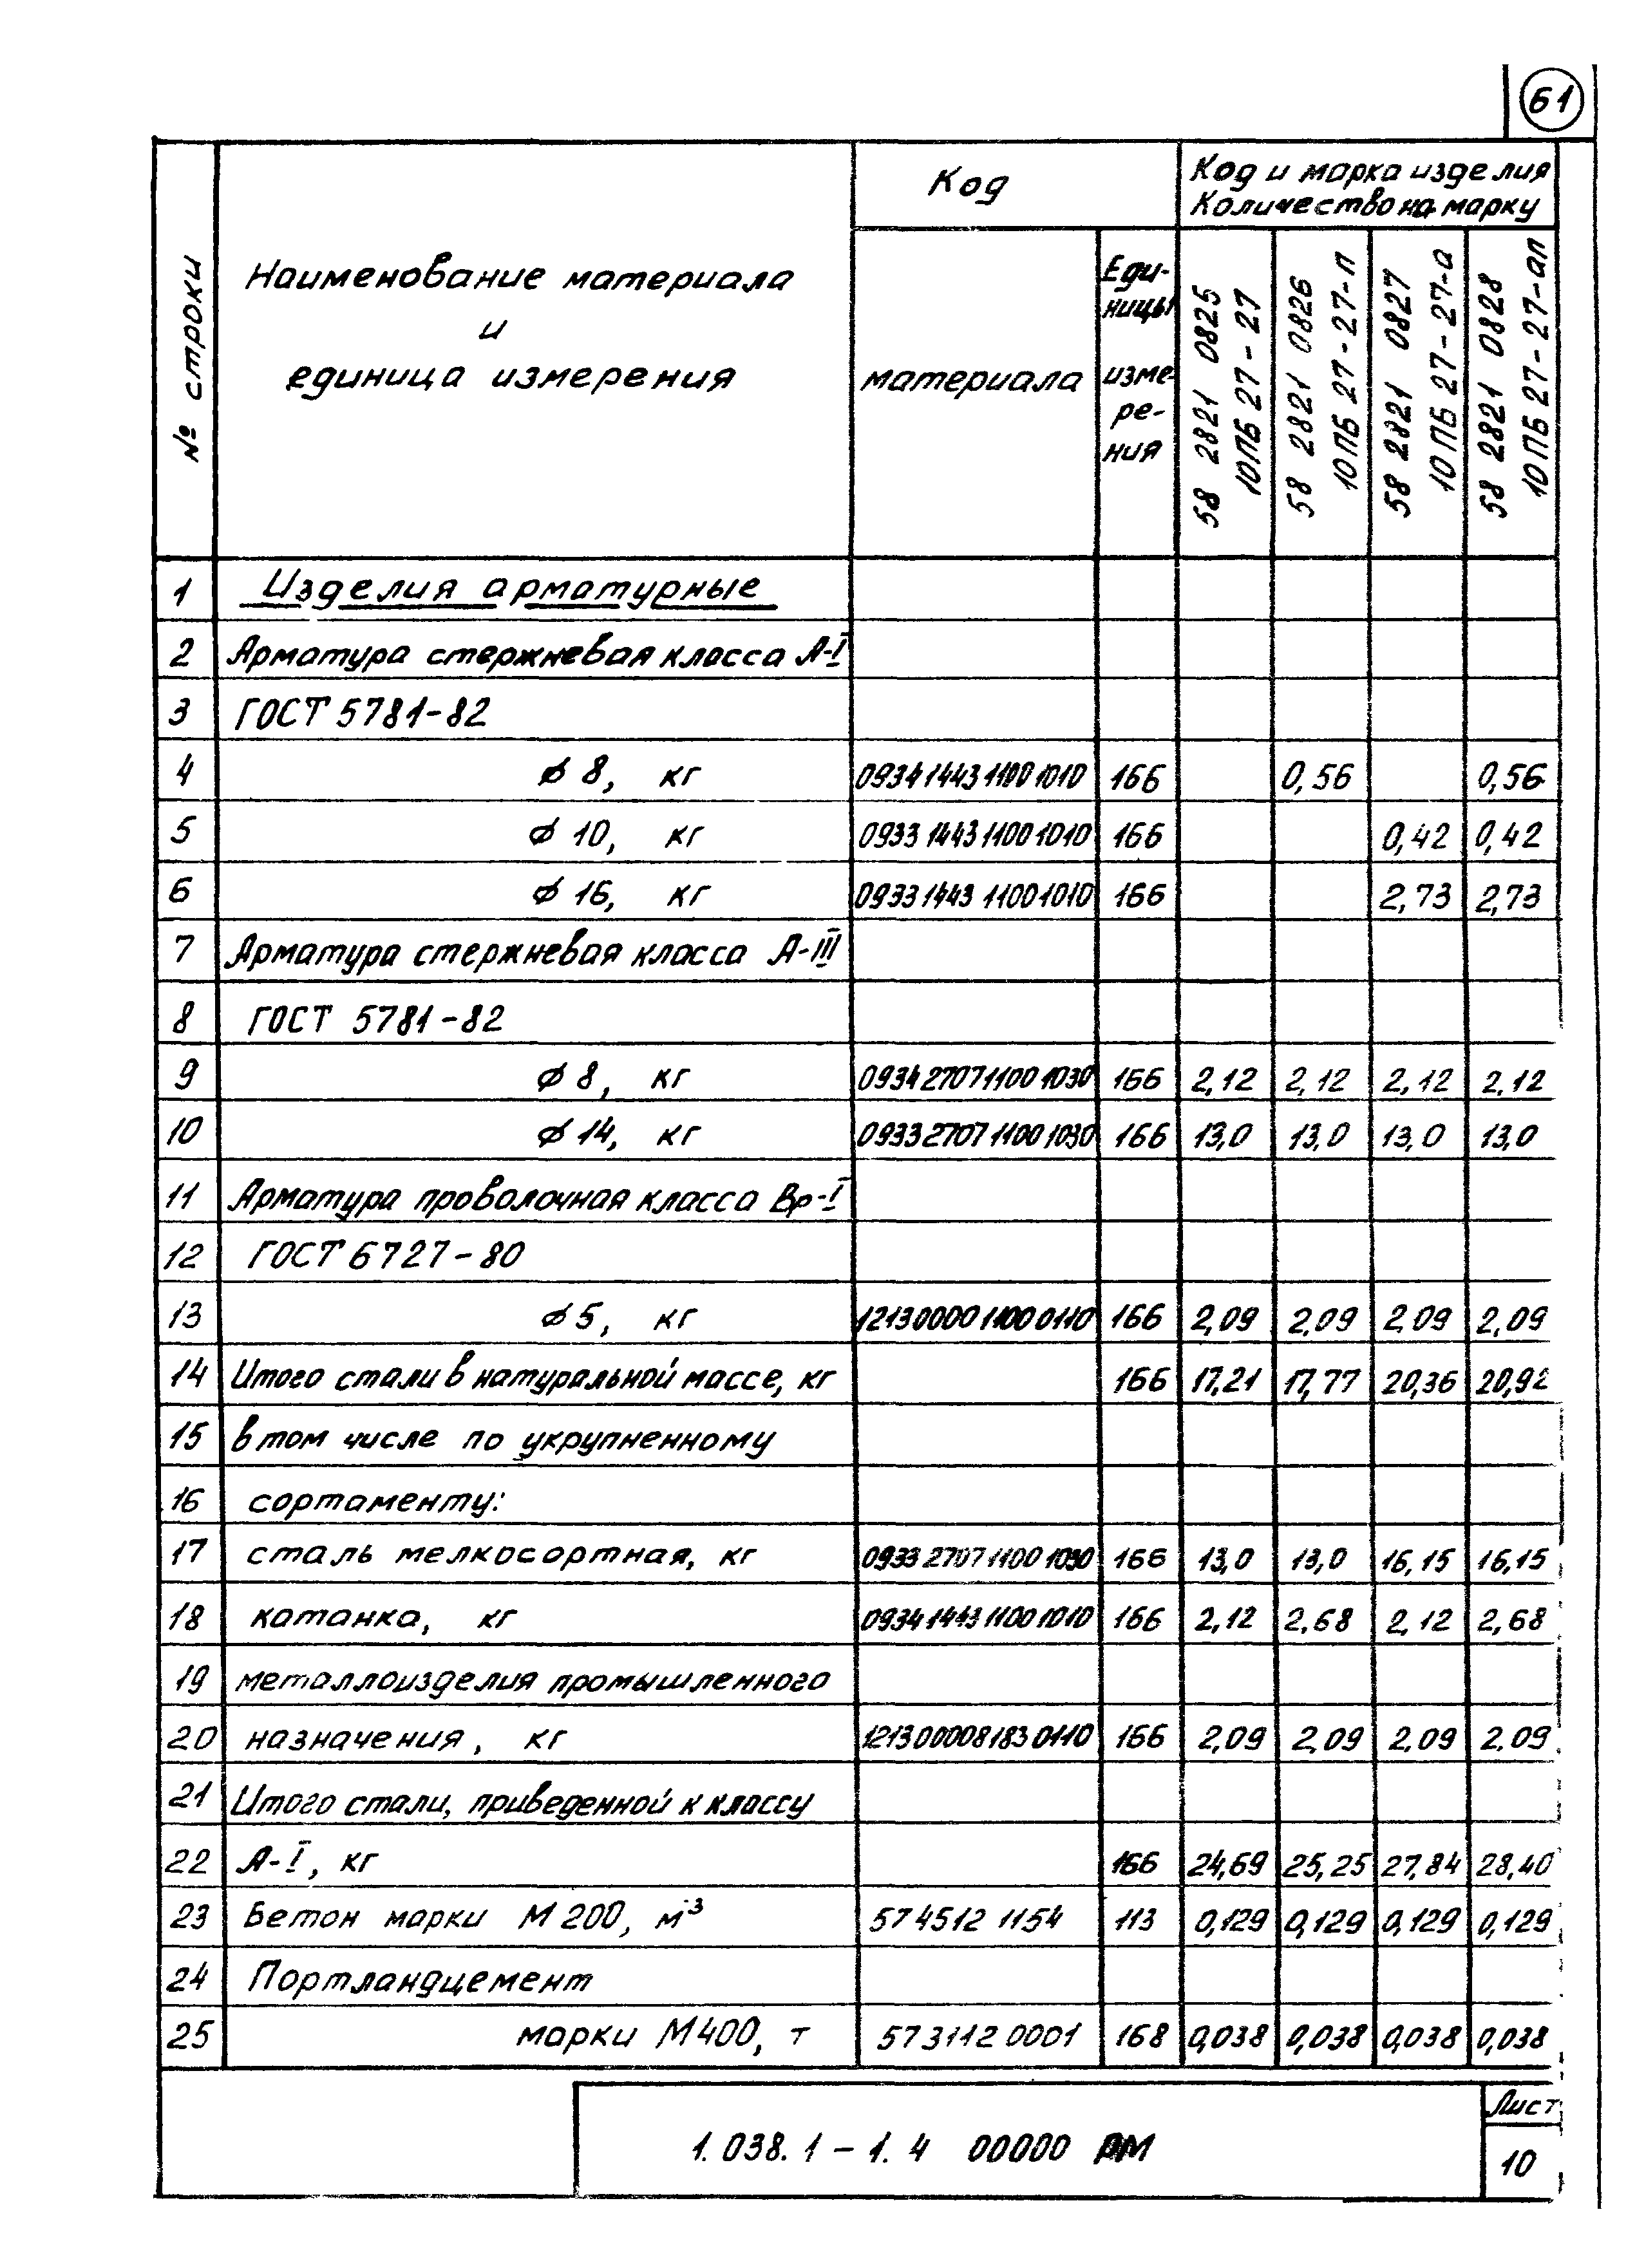 61
№ строки
Наименование материала
и
единица измерения
Код
материала
Еди-
ницы
изме-
ре-
ния
Код и марка изделия
Количество на марку
58 2821 0825
10ПБ 27-27
58 2821 0826
10ПБ 27-27-п
58 2821 0827
10ПБ 27-27-а
58 2821 0828
10ПБ 27-27-ап
1 Изделия арматурные
2 Арматура стержневая класса А-I
3 ГОСТ 5781-82
4 ϕ 8, кг 0934 1443 1100 1010 166 0,56 0,56
5 ϕ 10, кг 0933 1443 1100 1010 166 0,42 0,42
6 ϕ 16, кг 0933 1443 1100 1010 166 2,73 2,73
7 Арматура стержневая класса А-III
8 ГОСТ 5781-82
9 ϕ 8, кг 0934 2707 1100 1030 166 2,12 2,12 2,12 2,12
10 ϕ 14, кг 0933 2707 1100 1030 166 13,0 13,0 13,0 13,0
11 Арматура проволочная класса Вр-I
12 ГОСТ 6727-80
13 ϕ 5, кг 1213 0000 1100 0110 166 2,09 2,09 2,09 2,09
14 Итого стали в натуральной массе, кг 166 17,21 17,77 20,36 20,92
15 в том числе по укрупненному
16 сортаменту:
17 сталь мелкосортная, кг 0933 2707 1100 1030 166 13,0 13,0 16,15 16,15
18 катанка, кг 0934 1443 1100 1010 166 2,12 2,68 2,12 2,68
19 металлоизделия промышленного
20 назначения, кг 1213 0000 8183 0110 166 2,09 2,09 2,09 2,09
21 Итого стали, приведенной к классу
22 А-I, кг 166 24,69 25,25 27,84 28,40
23 Бетон марки М 200, м³ 574512 1154 113 0,129 0,129 0,129 0,129
24 Портландцемент
25 марки М400, т 573112 0001 168 0,038 0,038 0,038 0,038
1.038.1-1.4 00000 РМ
Лист
10